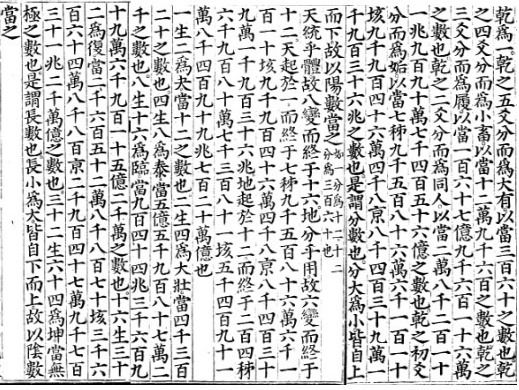 乾為一乾之五爻分而為大有以當三百六十之數也乾
之四爻分而為小畜以當十二萬九千六百之數也乾之
三爻分而為履以當一百六十七億九千六百一十六萬
之數也乾之二爻分而為同人以當二萬八千二百一十
一兆九百九十萬七千四百五十六億之數也乾之初爻
分而為姤以當七秭九千五百八十六萬六千一百一十
垓九千九百四十六萬四千八京八千四百三十九萬一
千九百三十六兆之數也是謂分數也分大為小皆自上
而下故以陽數當之 一分為十二十二分為三百六十也
天統乎體故八變而終于十六地分乎用故六變而終于
十二天起於一而終于七秭九千五百八十六萬六千一
百一十垓九千九百四十六萬四千八京八千四百三十
九萬一千九百三十六兆地起於十二而終于二百四秭
六千九百八十萬七千三百八十一垓五千四百九十一
萬八千四百九十九兆七百二十萬億也
一生二為夬當十二之數也二生四為大壯當四千三百
二十之數也四生八為泰當五億五千九百八十七萬二
千之數也八生十六為臨當九百四十四兆三千六百九
十九萬六千九百一十五億二千萬之數也十六生三十
二為復當二千六百五十二萬八千八百七十垓三千六
百六十四萬八千八百京二千九百四十七萬九千七百
三十一兆二千萬億之數也三十二生六十四為坤當無
極之數也是謂長數也長小為大皆自下而上故以陰數
當之